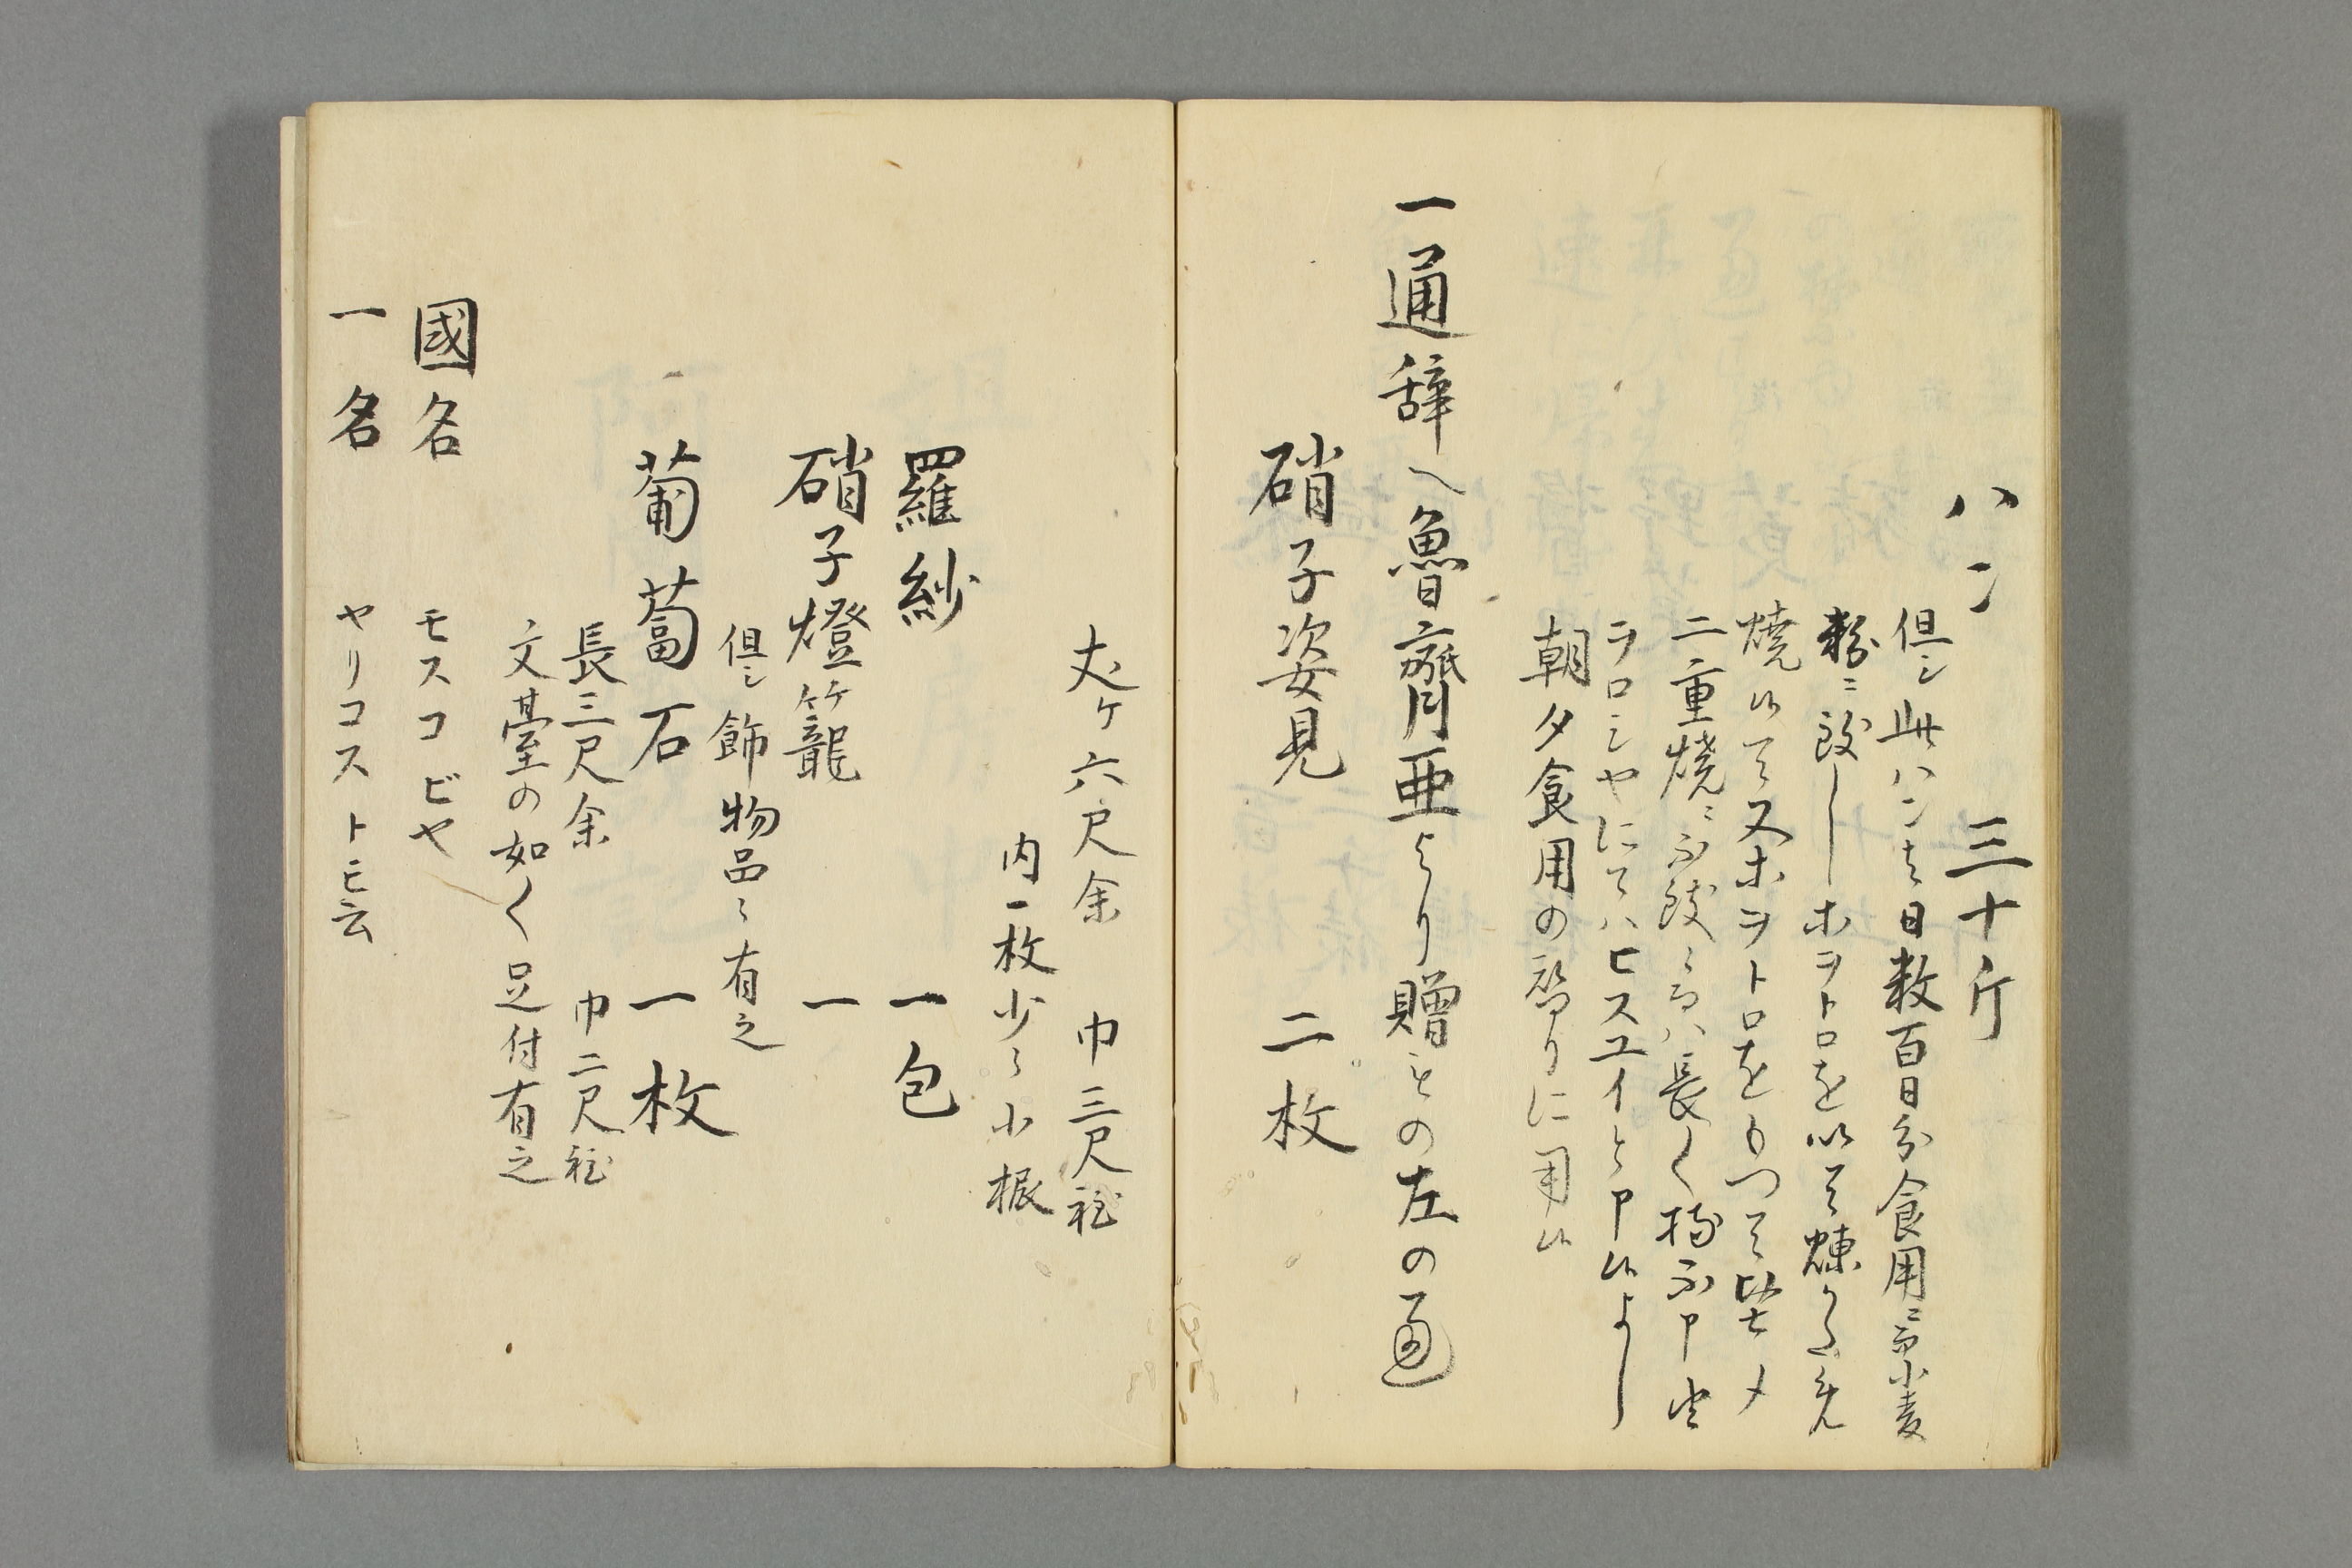 ハン　三十斤
但シ此ハンは日数百日分食用ニ而小麦
粉ニ致しホヲトロを以て煉りかため
焼候て又ホヲトロをもつて堅メ
二重焼ニ不致候而ハ長く持不申由
ヲロシヤにてハヒスユイと申候よし
朝夕食用の替りに用候
一通辞へ魯齊亜より贈もの左の通
硝子姿見　二枚
丈ケ六尺余　巾三尺程
内一枚少々小振
羅紗　一包
硝子燈籠　一
但シ飾物品々有之
葡萄石　一枚
長三尺余　巾二尺程
文臺の如く足付有之
國名　モスコビヤ
一名　ヤリコストモ云